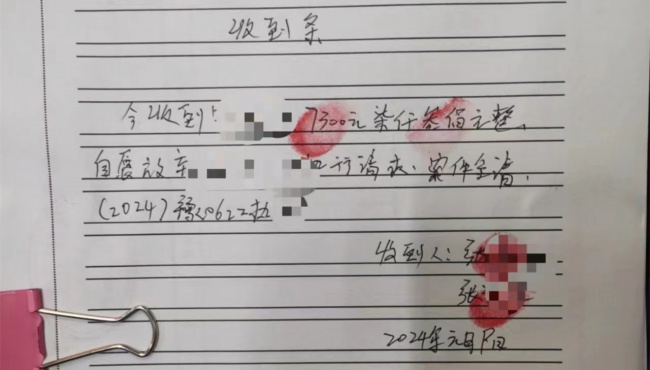 收到条
今收到 7300元柒仟叁佰元整、
自愿放弃 请求、案件全清,
(2024)豫0622执
收到人: 张
张
2024年元月 日